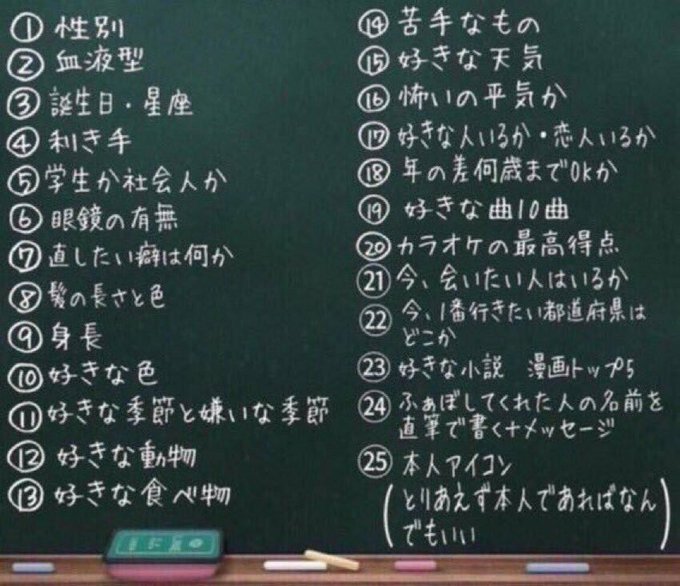 ① 性別
② 血液型
③ 誕生日・星座
④ 利き手
⑤ 学生か社会人か
⑥ 眼鏡の有無
⑦ 直したい癖は何か
⑧ 髪の長さと色
⑨ 身長
⑩ 好きな色
⑪ 好きな季節と嫌いな季節
⑫ 好きな動物
⑬ 好きな食べ物
⑭ 苦手なもの
⑮ 好きな天気
⑯ 怖いの平気か
⑰ 好きな人いるか・恋人いるか
⑱ 年の差何歳までOKか
⑲ 好きな曲10曲
⑳ カラオケの最高得点
㉑ 今、会いたい人はいるか
㉒ 今、1番行きたい都道府県は
どこか
㉓ 好きな小説 漫画トップ5
㉔ ふぁぼしてくれた人の名前を
直筆で書く+メッセージ
㉕ 本人アイコン
(とりあえず本人であればなん
でもいい)